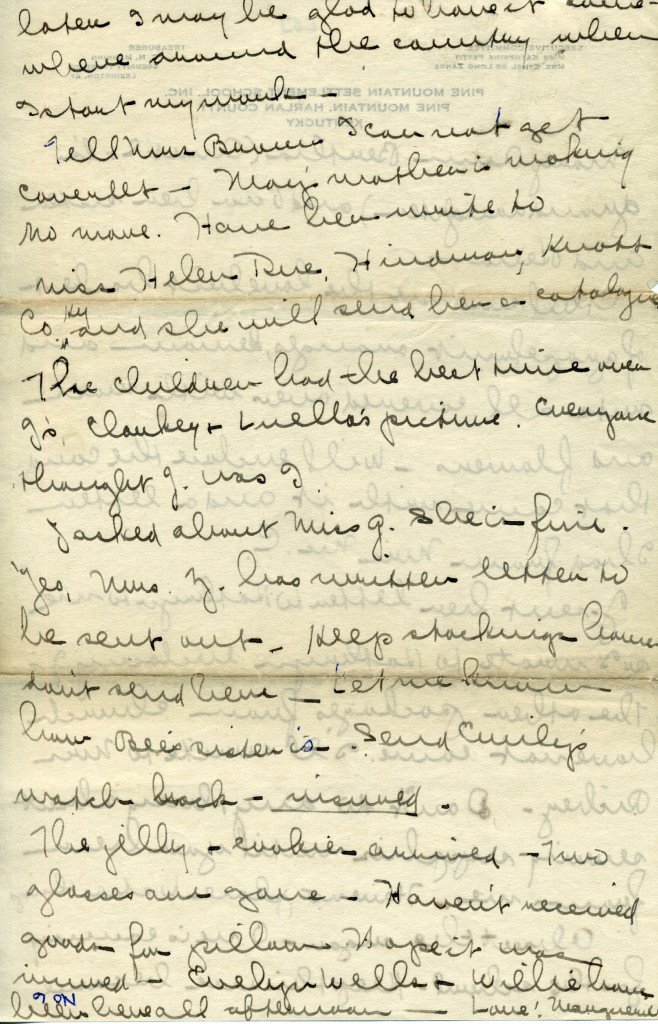 later I may be glad to have it some-
where around the country when
I start my work –
Tell Mrs Brown I can not get
coverlet – May's mother is making
no more. Have her write to
Miss Helen Dee, Hindman, Knott
Co. Ky and she will send her a catalogue
The children had the best time over
J's, Clarkey + Luella's picture. Everyone
thought J. was I
I asked about Miss G. She is fine.
Yes, Mrs. Z. has written letter to
be sent out – Keep stockings home
don't send here – Let me know
how Bee's sister is – Send Emily's
watch back – insured.
The jelly + cookies arrived – Two
glasses are gone – Haven't received
goods for pillow Hope it was
insured – Evelyn Wells + Willie have
been here all afternoon – Love! Marguerite
No 6